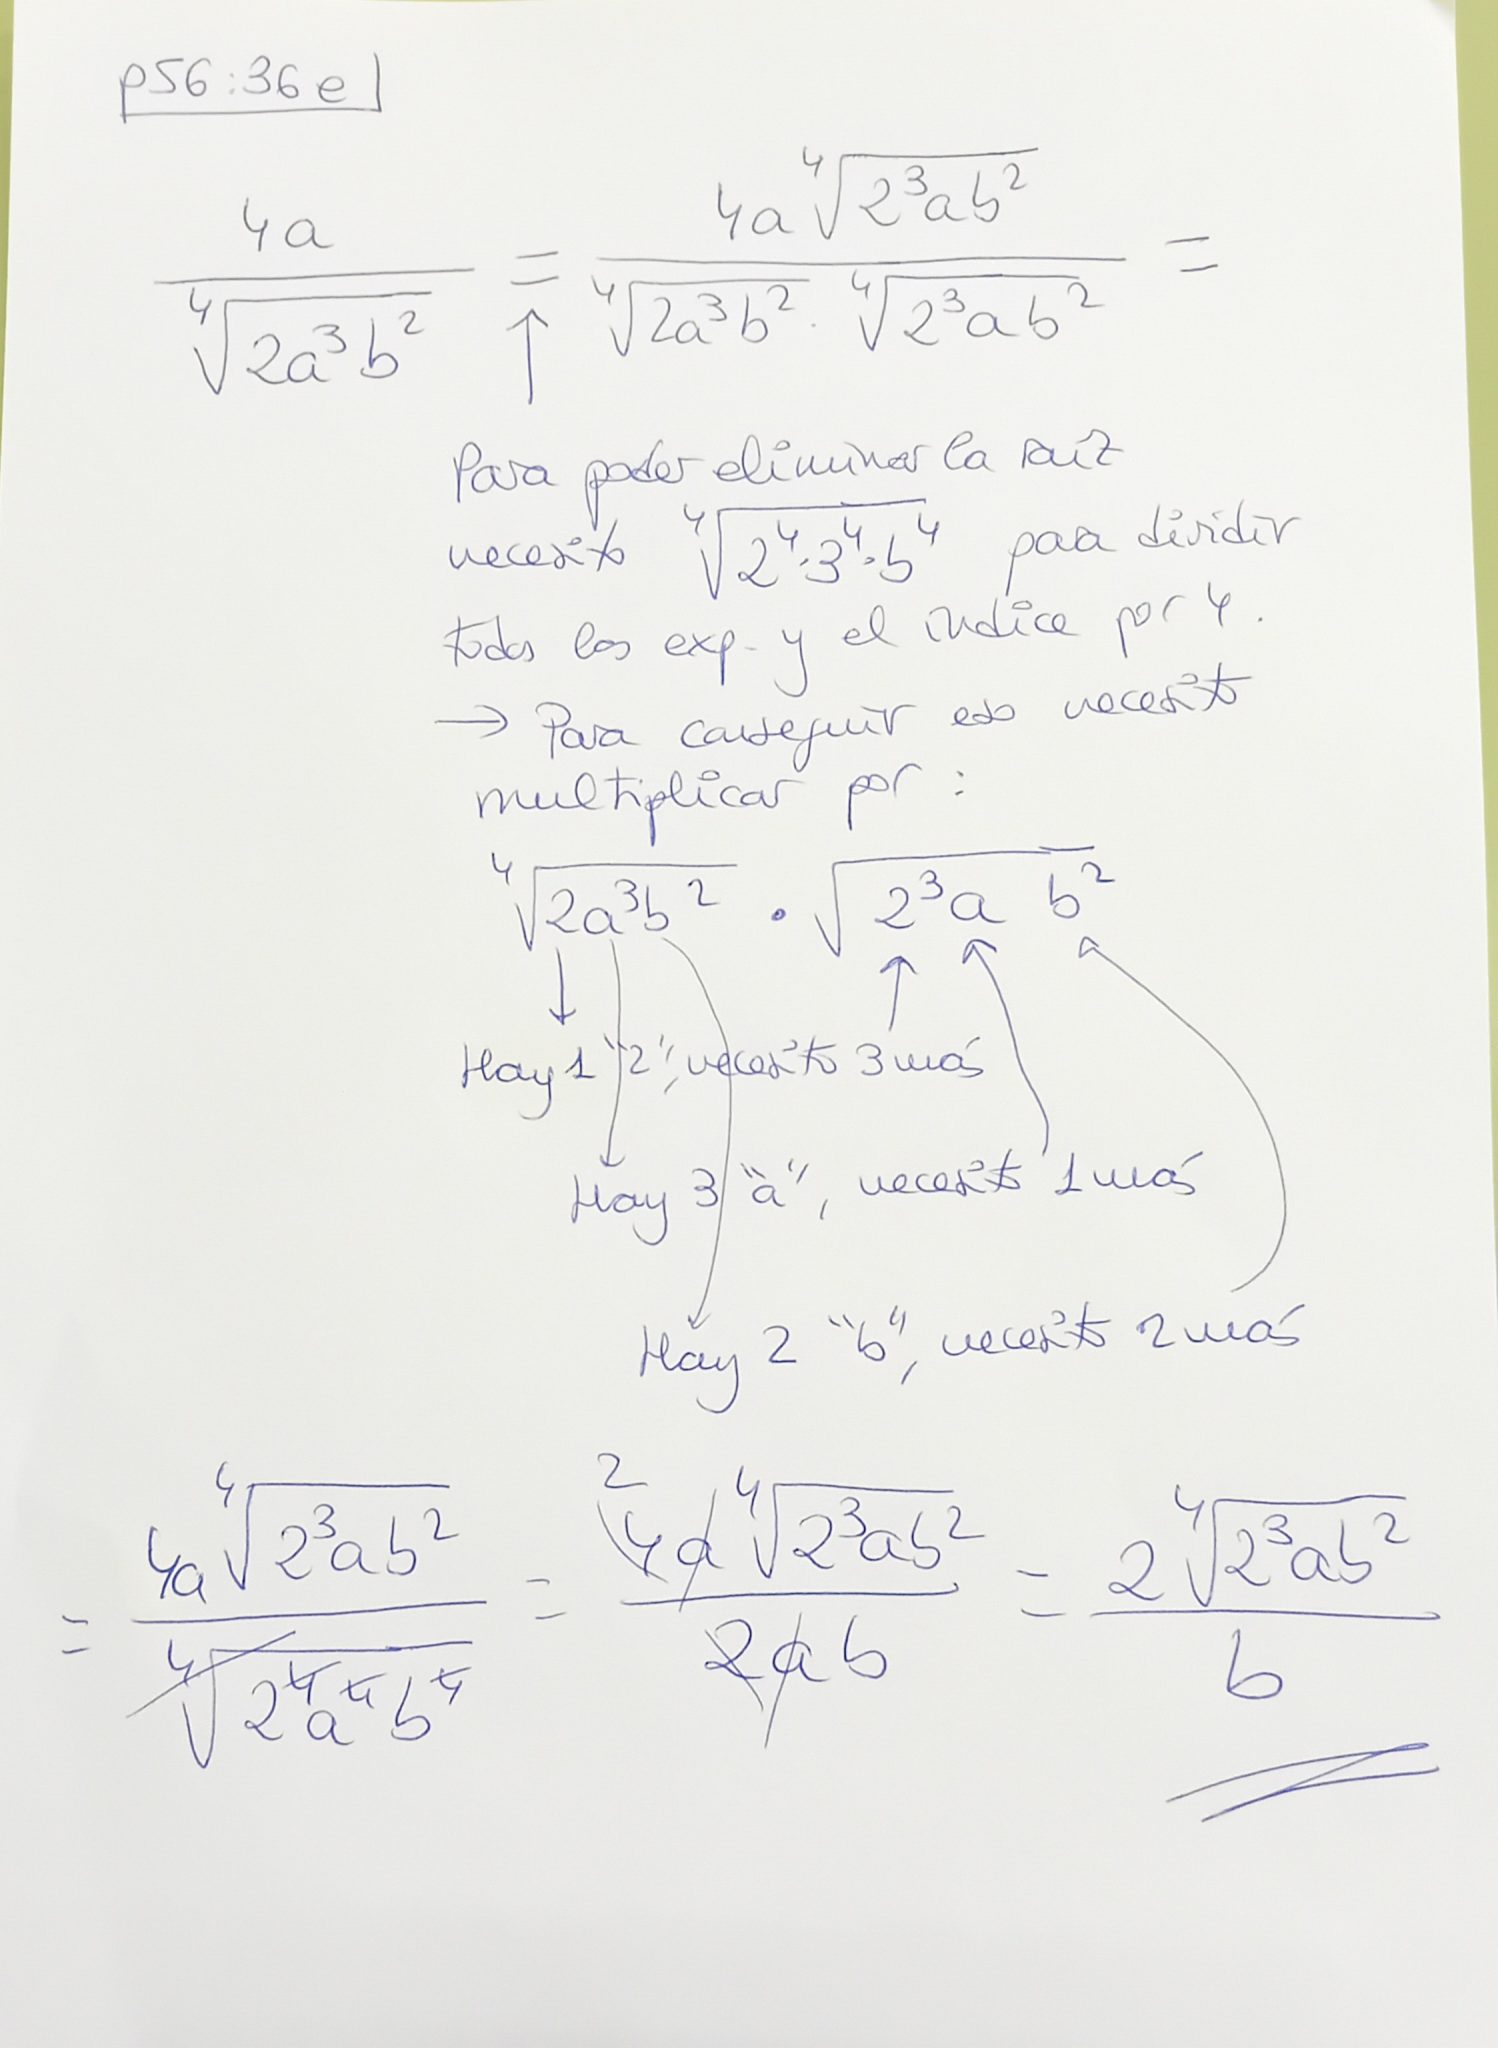 p56:36e)
4a / ∜(2a³b²) = 4a ∜(2³ab²) / (∜(2a³b²) · ∜(2³ab²)) =
Para poder eliminar la raíz
necesito ∜(2⁴·3⁴·b⁴) para dividir
todos los exp. y el índice por 4.
→ Para conseguir eso necesito
multiplicar por :
∜(2a³b²) · √(2³a b²)
Hay 1 "2", necesito 3 más
Hay 3 "a", necesito 1 más
Hay 2 "b", necesito 2 más
= 4a ∜(2³ab²) / ∜(2⁴a⁴b⁴) = 2 4a ∜(2³ab²) / 2ab = 2 ∜(2³ab²) / b